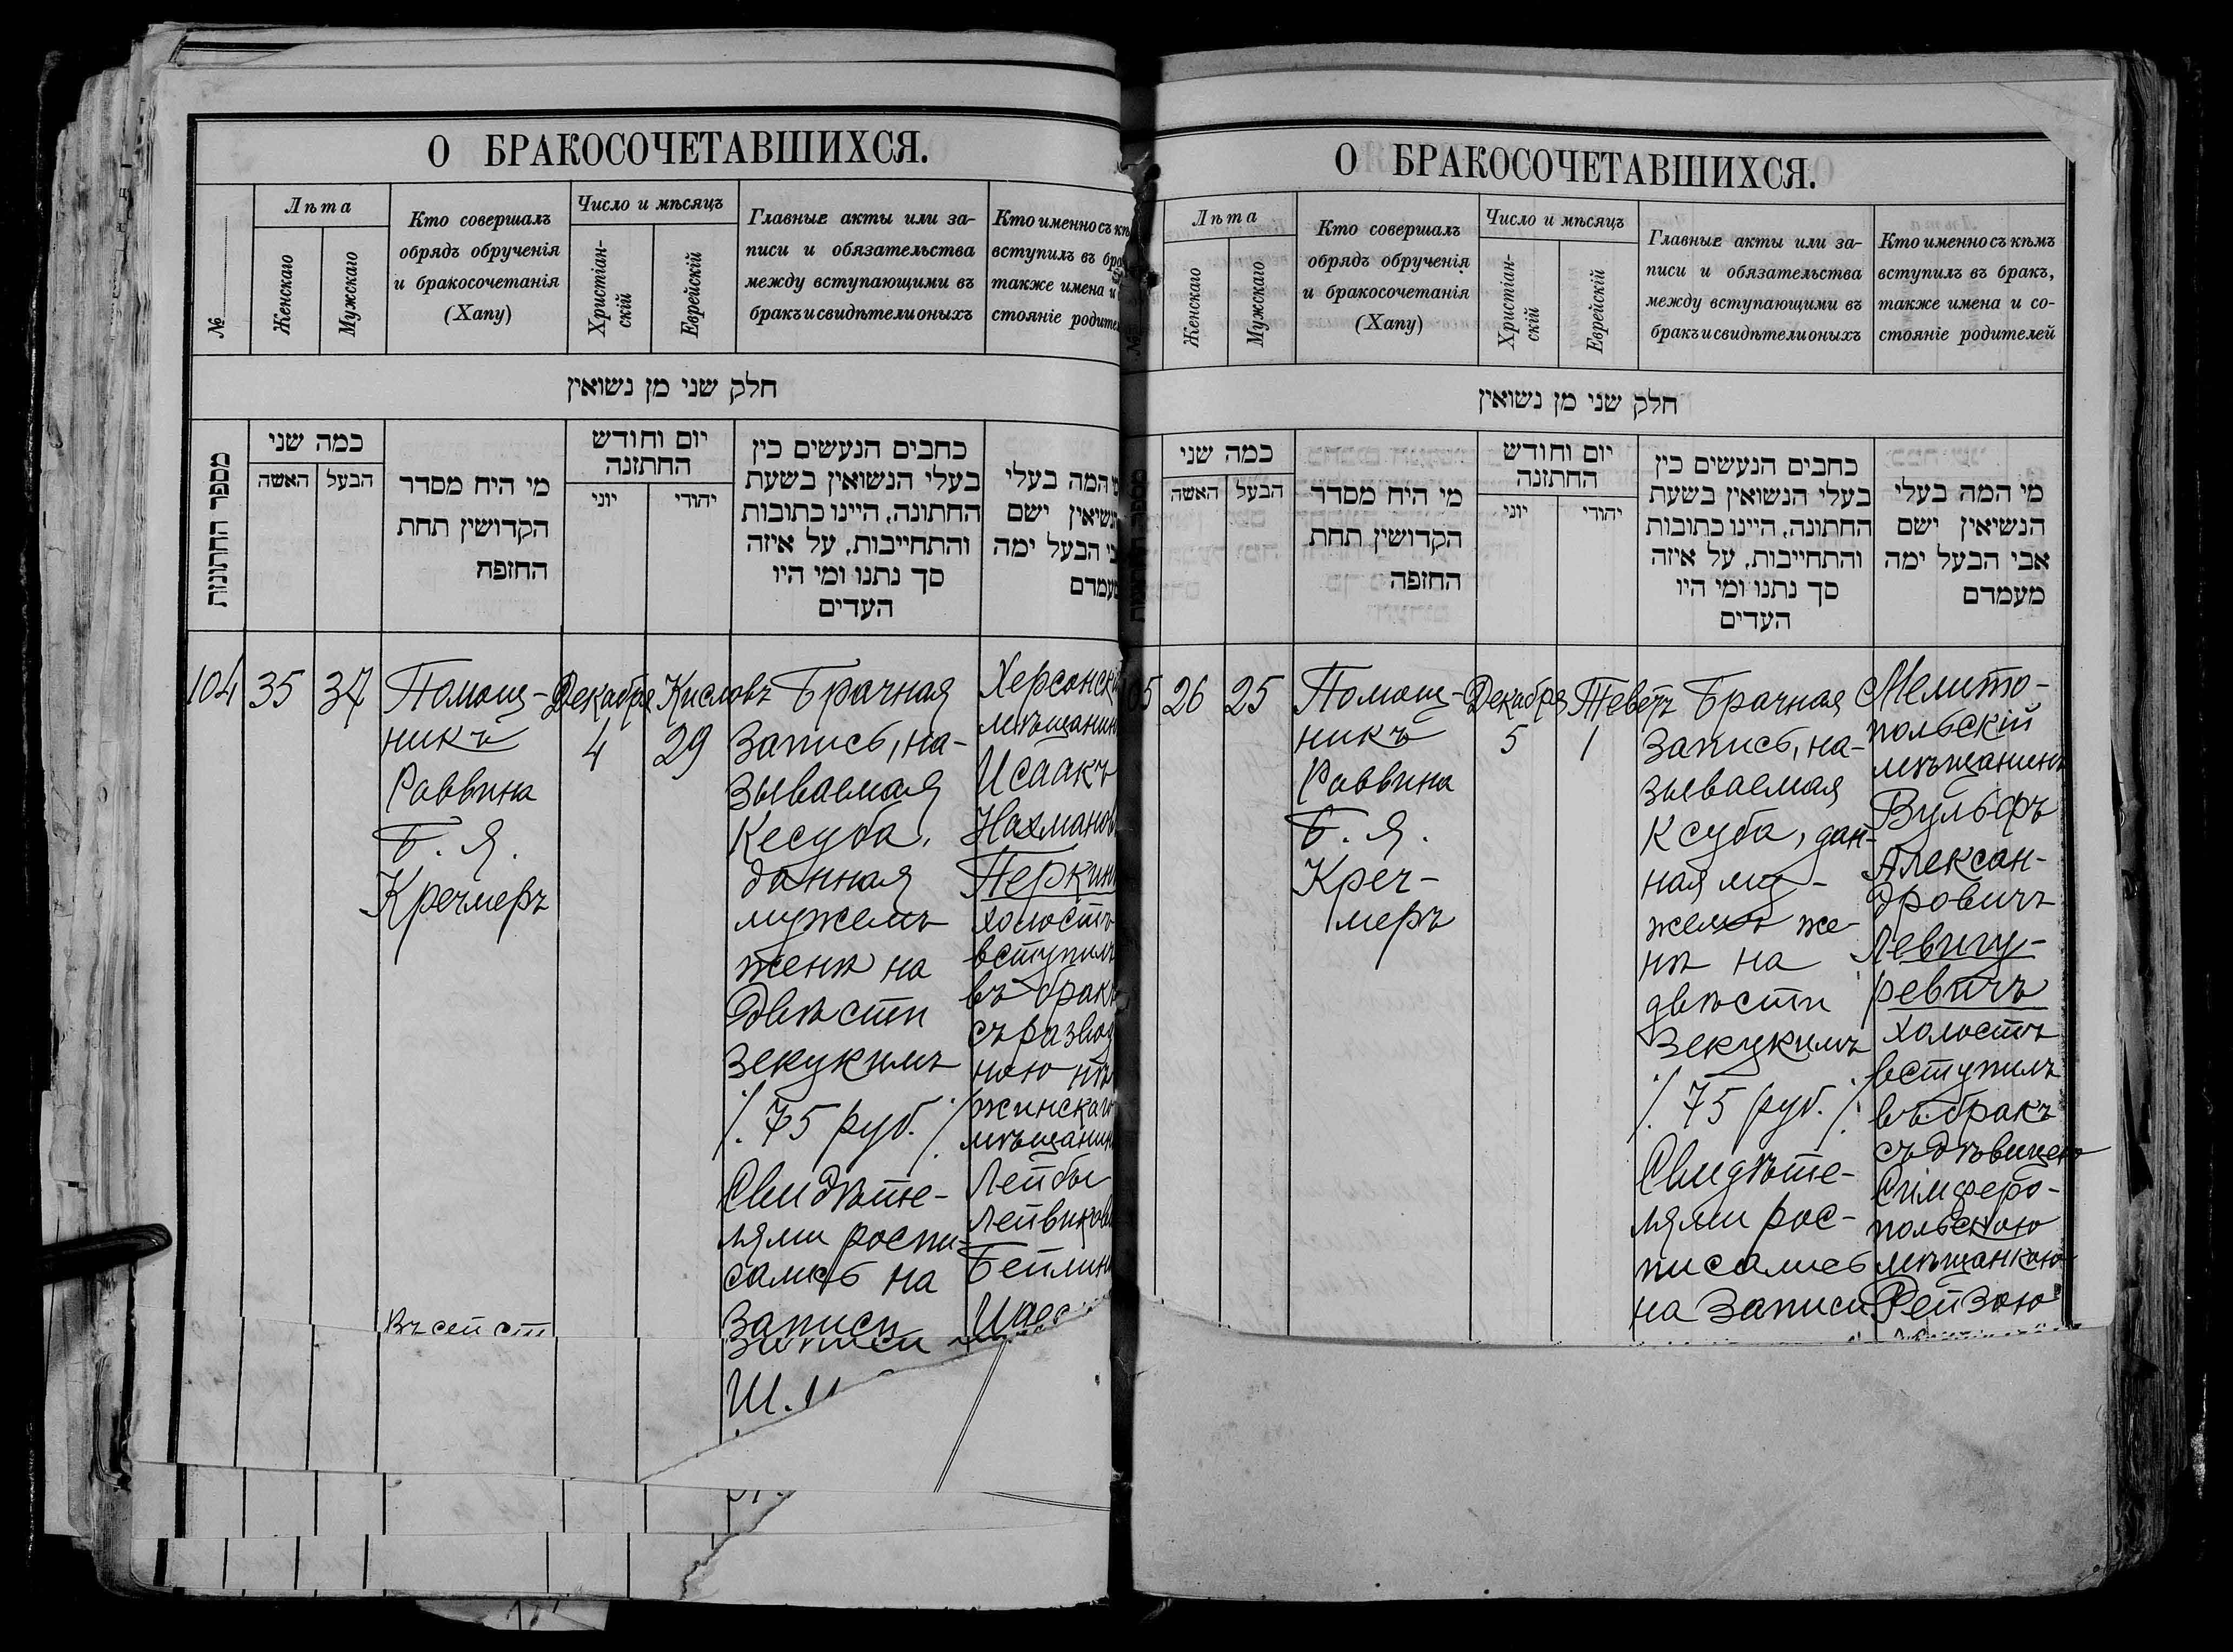 О БРАКОСОЧЕТАВШИХСЯ.
№
Лѣта
Женскаго
Мужскаго
Кто совершалъ
обрядъ обрученія
и бракосочетанія
(Хапу)
Число и мѣсяцъ
Христіан-
скій
Еврейскій
Главные акты или за-
писи и обязательства
между вступающими въ
бракъ и свидѣтели оныхъ
Кто именно съ
вступилъ въ
также имена и
стояніе
חלק שני מן נשואין
מספר החתונות
כמה שני
האשה
הבעל
מי היח מסדר
הקדושין תחת
החופה
יום וחודש
החתונה
יוני
יהודי
כתבים הנעשים בין
בעלי הנשואין בשעת
החתונה, היינו כתובות
והתחייבות, על איזה
סך נתנו ומי היו
העדים
המה בעלי
ישם
הבעל ימה
104
35
37
Помощ-
никъ
Раввина
Б. Я.
Кречмеръ
Декабря
4
Кисловъ
29
Брачная
Запись, на-
зываемая
Кесуба,
данная
мужемъ
женѣ на
двѣсти
зекукимъ
/. 75 руб. /.
Свидѣте-
лями роспи-
сались на
Записи
Записи
Ш.
Исаакъ
холостъ
вступилъ
въ бракъ
съ
Лейбы
Въ сей
О БРАКОСОЧЕТАВШИХСЯ.
Лѣта
Женскаго
Мужскаго
Кто совершалъ
обрядъ обрученія
и бракосочетанія
(Хапу)
Число и мѣсяцъ
Христіан-
скій
Еврейскій
Главные акты или за-
писи и обязательства
между вступающими въ
бракъ и свидѣтели оныхъ
Кто именно съ кѣмъ
вступилъ въ бракъ,
также имена и со-
стояніе родителей
חלק שני מן נשואין
כמה שני
האשה
הבעל
מי היח מסדר
הקדושין תחת
החופה
יום וחודש
החתונה
יוני
יהודי
כתבים הנעשים בין
בעלי הנשואין בשעת
החתונה, היינו כתובות
והתחייבות, על איזה
סך נתנו ומי היו
העדים
מי המה בעלי
הנשיאין ישם
אבי הבעל ימה
מעמדם
05
26
25
Помощ-
никъ
Раввина
Б. Я.
Креч-
меръ
Декабря
5
Теветъ
1
Брачная
Запись, на-
зываемая
Ксуба, дан-
ная му-
жемъ же-
нѣ на
двѣсти
Зекукимъ
/. 75 руб. /.
Свидѣте-
лями рос-
писались
на Записи
Мелито-
польскій
мѣщанинъ
Вульфъ
Алексан-
дровичъ
Левигу-
ревичъ
холостъ
вступилъ
въ бракъ
съ дѣвицею
Симферо-
польскою
мѣщанкою
Рейзою